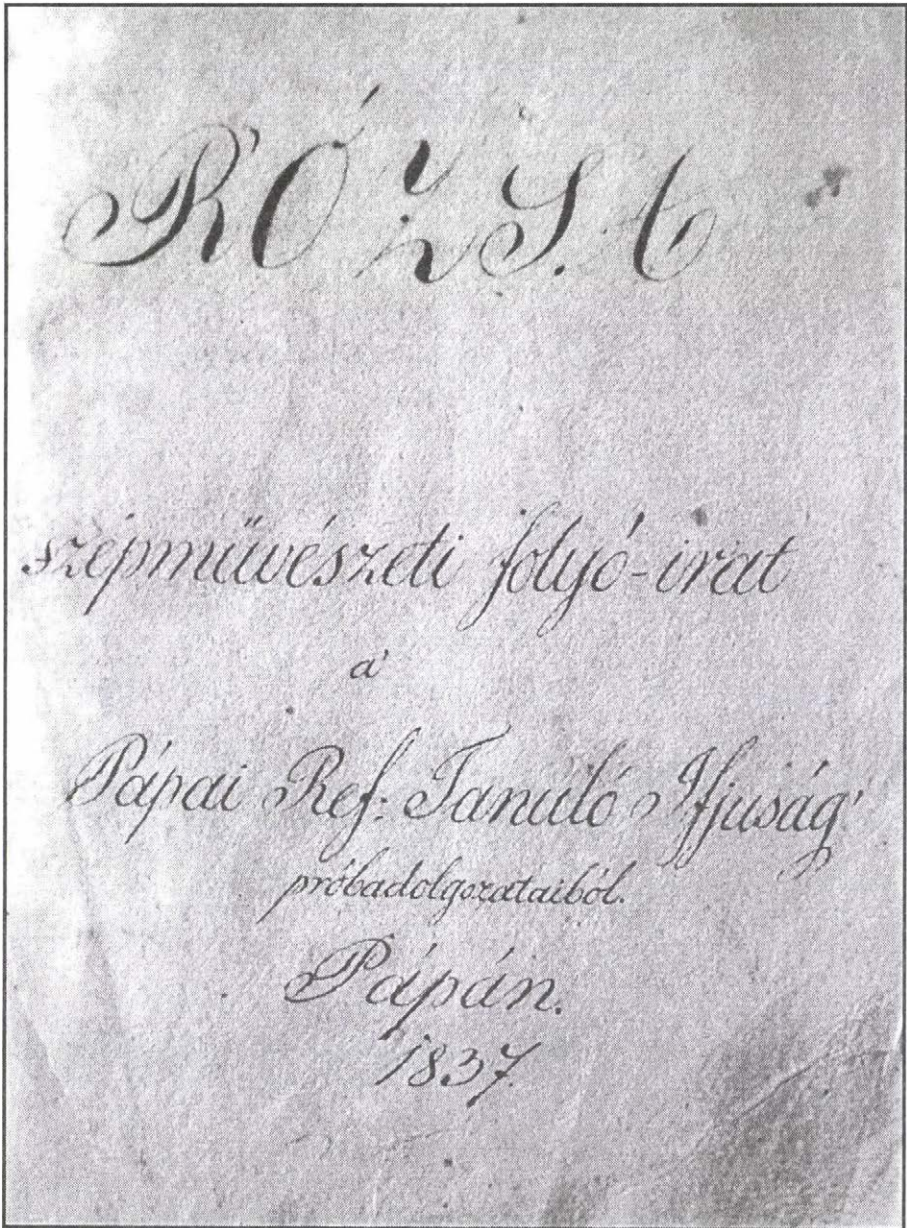 RÓZSA
szépművészeti folyó-irat
a'
Pápai Ref: Tanuló Ifjuság'
próbadolgozataiból.
Pápán.
1837.